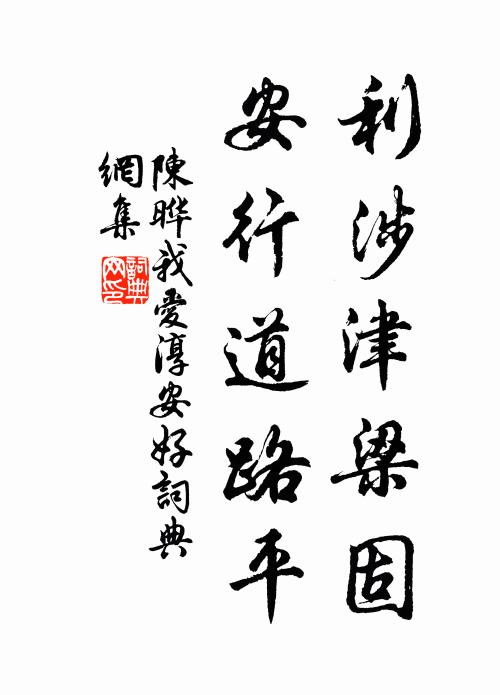 利涉津梁固
安行道路平
陳晔我愛淳安好詞典
網集
詞典
网印